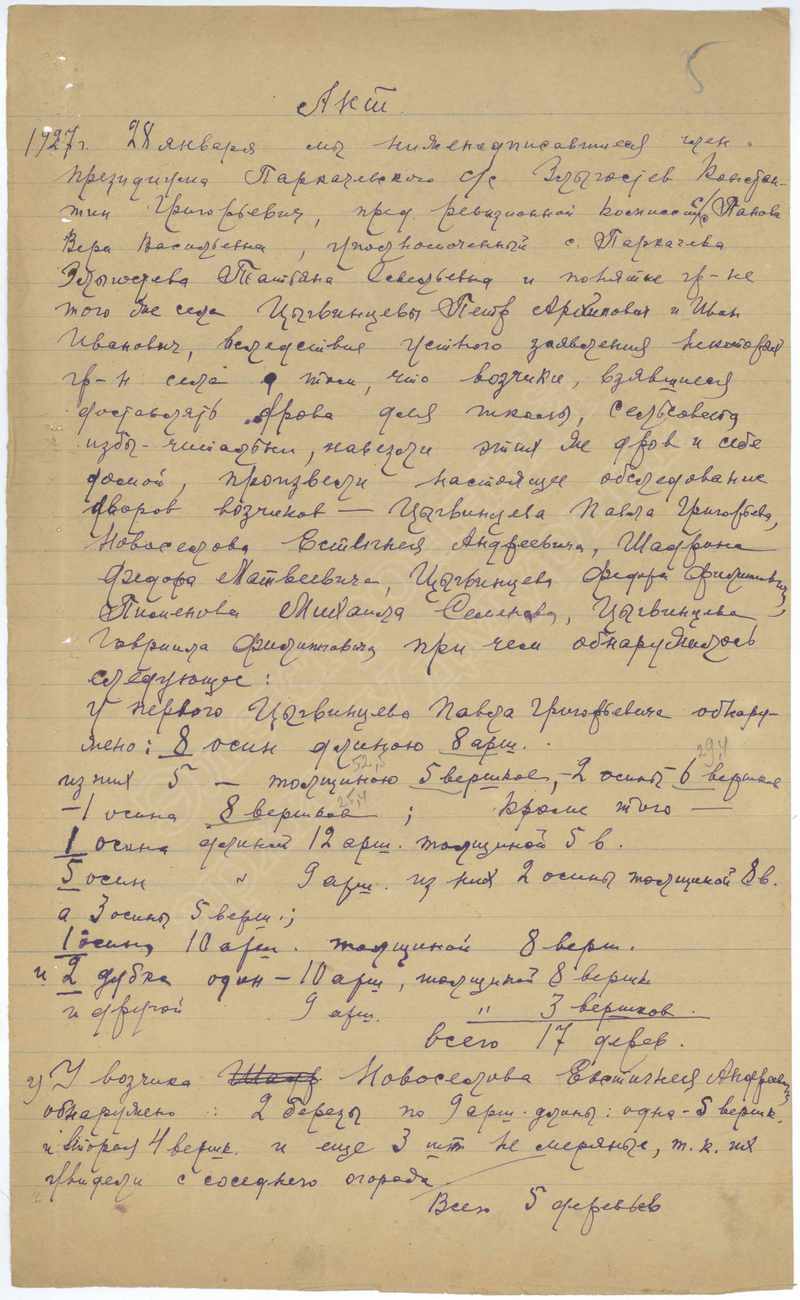 5
Акт.
1927 г. 28 января мы нижеподписавшиеся член
президиума Паркачевского с/с Злыгостев Констан-
тин Григорьевич, пред. ревизионной комиссии с/с Панова
Вера Васильевна, уполномоченный с. Паркачева
Злыгостева Татьяна Савельевна и понятые гр-не
того же села Цыгвинцевы Петр Архипович и Иван
Иванович, вследствия устного заявления некоторых
гр-н села о том, что возчики, взявшиеся
доставлять дрова для школы, сельсовета
избы-читальни, навезли этих же дров и себе
домой, произвели настоящее обследование
дворов возчиков — Цыгвинцева Павла Григорьева,
Новоселова Евстигнея Андреевича, Шаврина
Федора Матвеевича, Цыгвинцева Федора Филиппович,
Пименова Михаила Семенова, Цыгвинцева
Гавриила Филипповича при чем обнаружилось
следующее:
У первого Цыгвинцева Павла Григорьевича обнару-
жено: 8 осин длиною 8 арш.
из них 5 — толщиною 5 вершков, — 2 осины 6 вершков
— 1 осина 8 вершков; Кроме того —
1 осина длиной 12 арш. толщиной 5 в.
5 осин " 9 арш. из них 2 осины толщиной 8 в.
а 3 осины 5 верш.;
1 осина 10 арш. толщиной 8 верш.
и 2 дубка один — 10 арш, толщиной 8 вершк
и другой 9 арш. " 3 вершков.
всего 17 дерев.
2) У возчика Новоселова Евстигнея Андреевич
обнаружено: 2 березы по 9 арш. длины: одна - 5 вершк.
и вторая 4 вершк. и еще 3 шт не меряные, т.к. их
увидели с соседнего огорода
Всего 5 деревьев